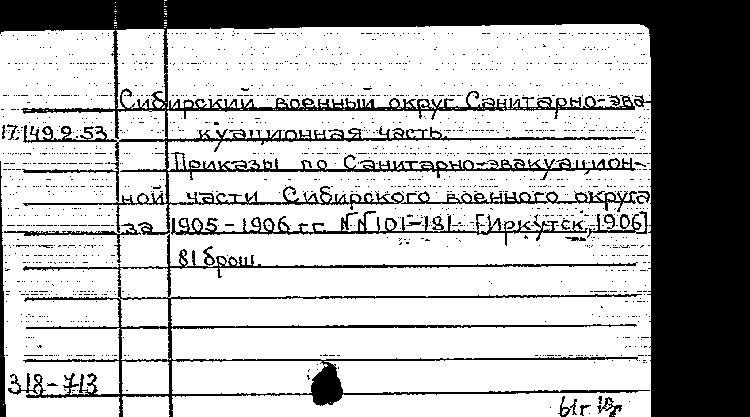 Сибирский военный округ. Санитарно-эва-
17.149.2.53 куационная часть.
Приказы по Санитарно-эвакуацион-
ной части Сибирского военного округа
за 1905-1906 гг. №№101-181. [Иркутск, 1906]
81 брош.
318-713
61г